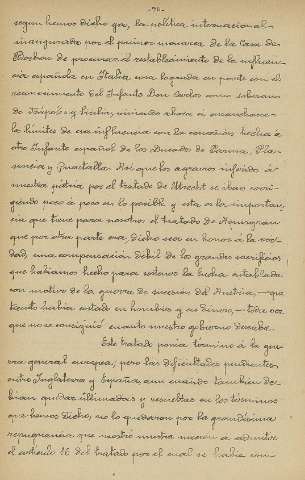 -78-
segun hemos dicho ya, la política internacional
inaugurada por el primer monarca de la Casa de
Borbon de procurar el restablecimiento de la influen-
cia española en Italia una lograda en parte con el
reconocimiento del Infante Don Carlos como soberano
de Nápoles y Sicilia, viniendo ahora á ensancharse
los límites de esa influencia con la concesion hecha á
otro Infante español de los Ducados de Parma, Pla-
sencia y Guastalla. Así que los agravios inferidos á
nuestra pátria por el tratado de Utrecht se iban corri-
giendo poco á poco en lo posible y esta es la importan-
cia que tiene para nosotros el tratado de Aquisgran
que por otra parte era, dicho sea en honor á la ver-
dad, una compensacion débil de los grandes sacrificios
que habiamos hecho para sostener la lucha entablada
con motivo de la guerra de sucesion del Austria, que
tanto habia costado en hombres y en dinero, toda vez
que no se consiguió cuanto nuestro gobierno deseaba.
Este tratado ponia término á la gue-
rra general europea; pero las dificultades pendientes
entre Inglaterra y España aun cuando tambien de-
bian quedar ultimadas y resueltas en los términos
que hemos dicho, no lo quedaron por la grandísima
repugnancia que mostró nuestra nacion á admitir
el artículo 16 del tratado por el cual se habia con-